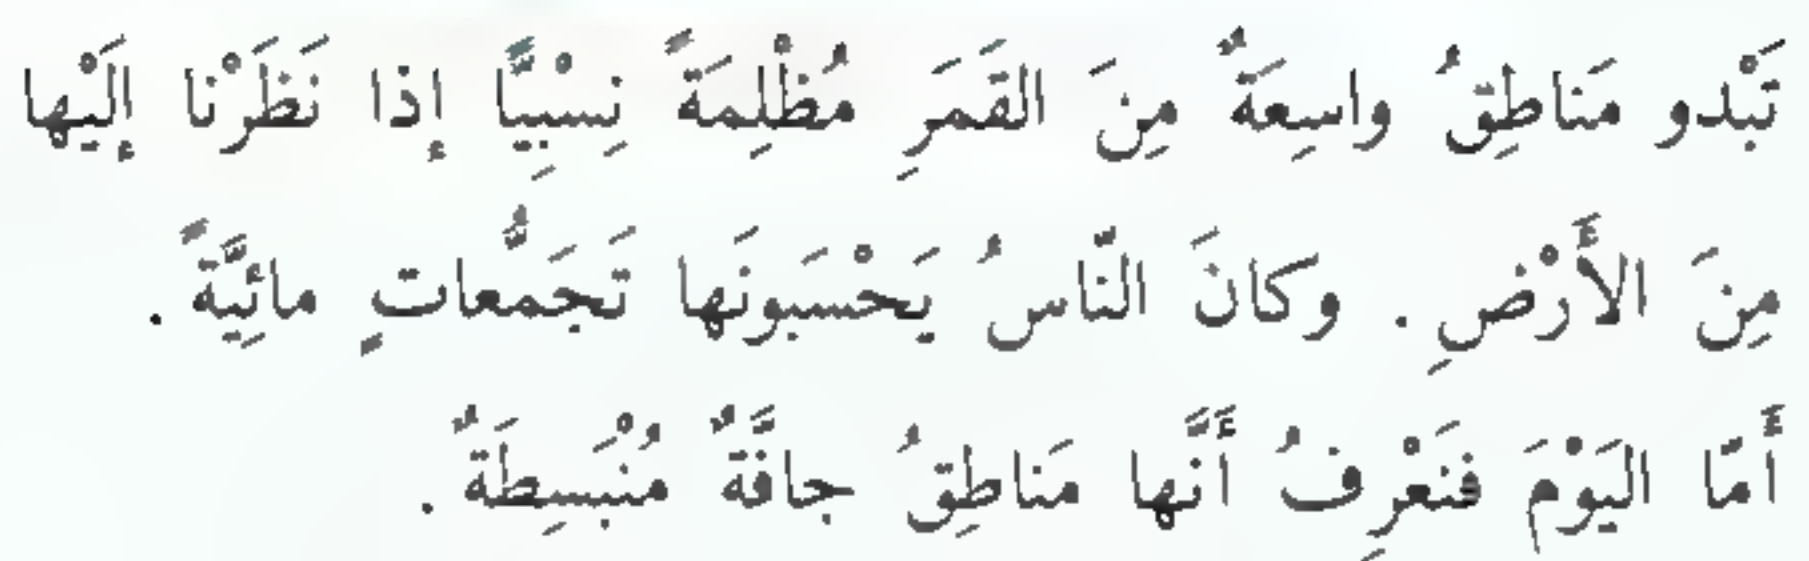 تَبْدو مَناطِقُ واسِعَةٌ مِنَ القَمَرِ مُظْلِمَةً نِسْبِيًّا إذا نَظَرْنا إلَيْها
مِنَ الأَرْضِ. وكانَ النّاسُ يَحْسَبونَها تَجَمُّعاتٍ مائِيَّةً.
أَمّا اليَوْمَ فَنَعْرِفُ أَنَّها مَناطِقُ جافَّةٌ مُنْبَسِطَةٌ.